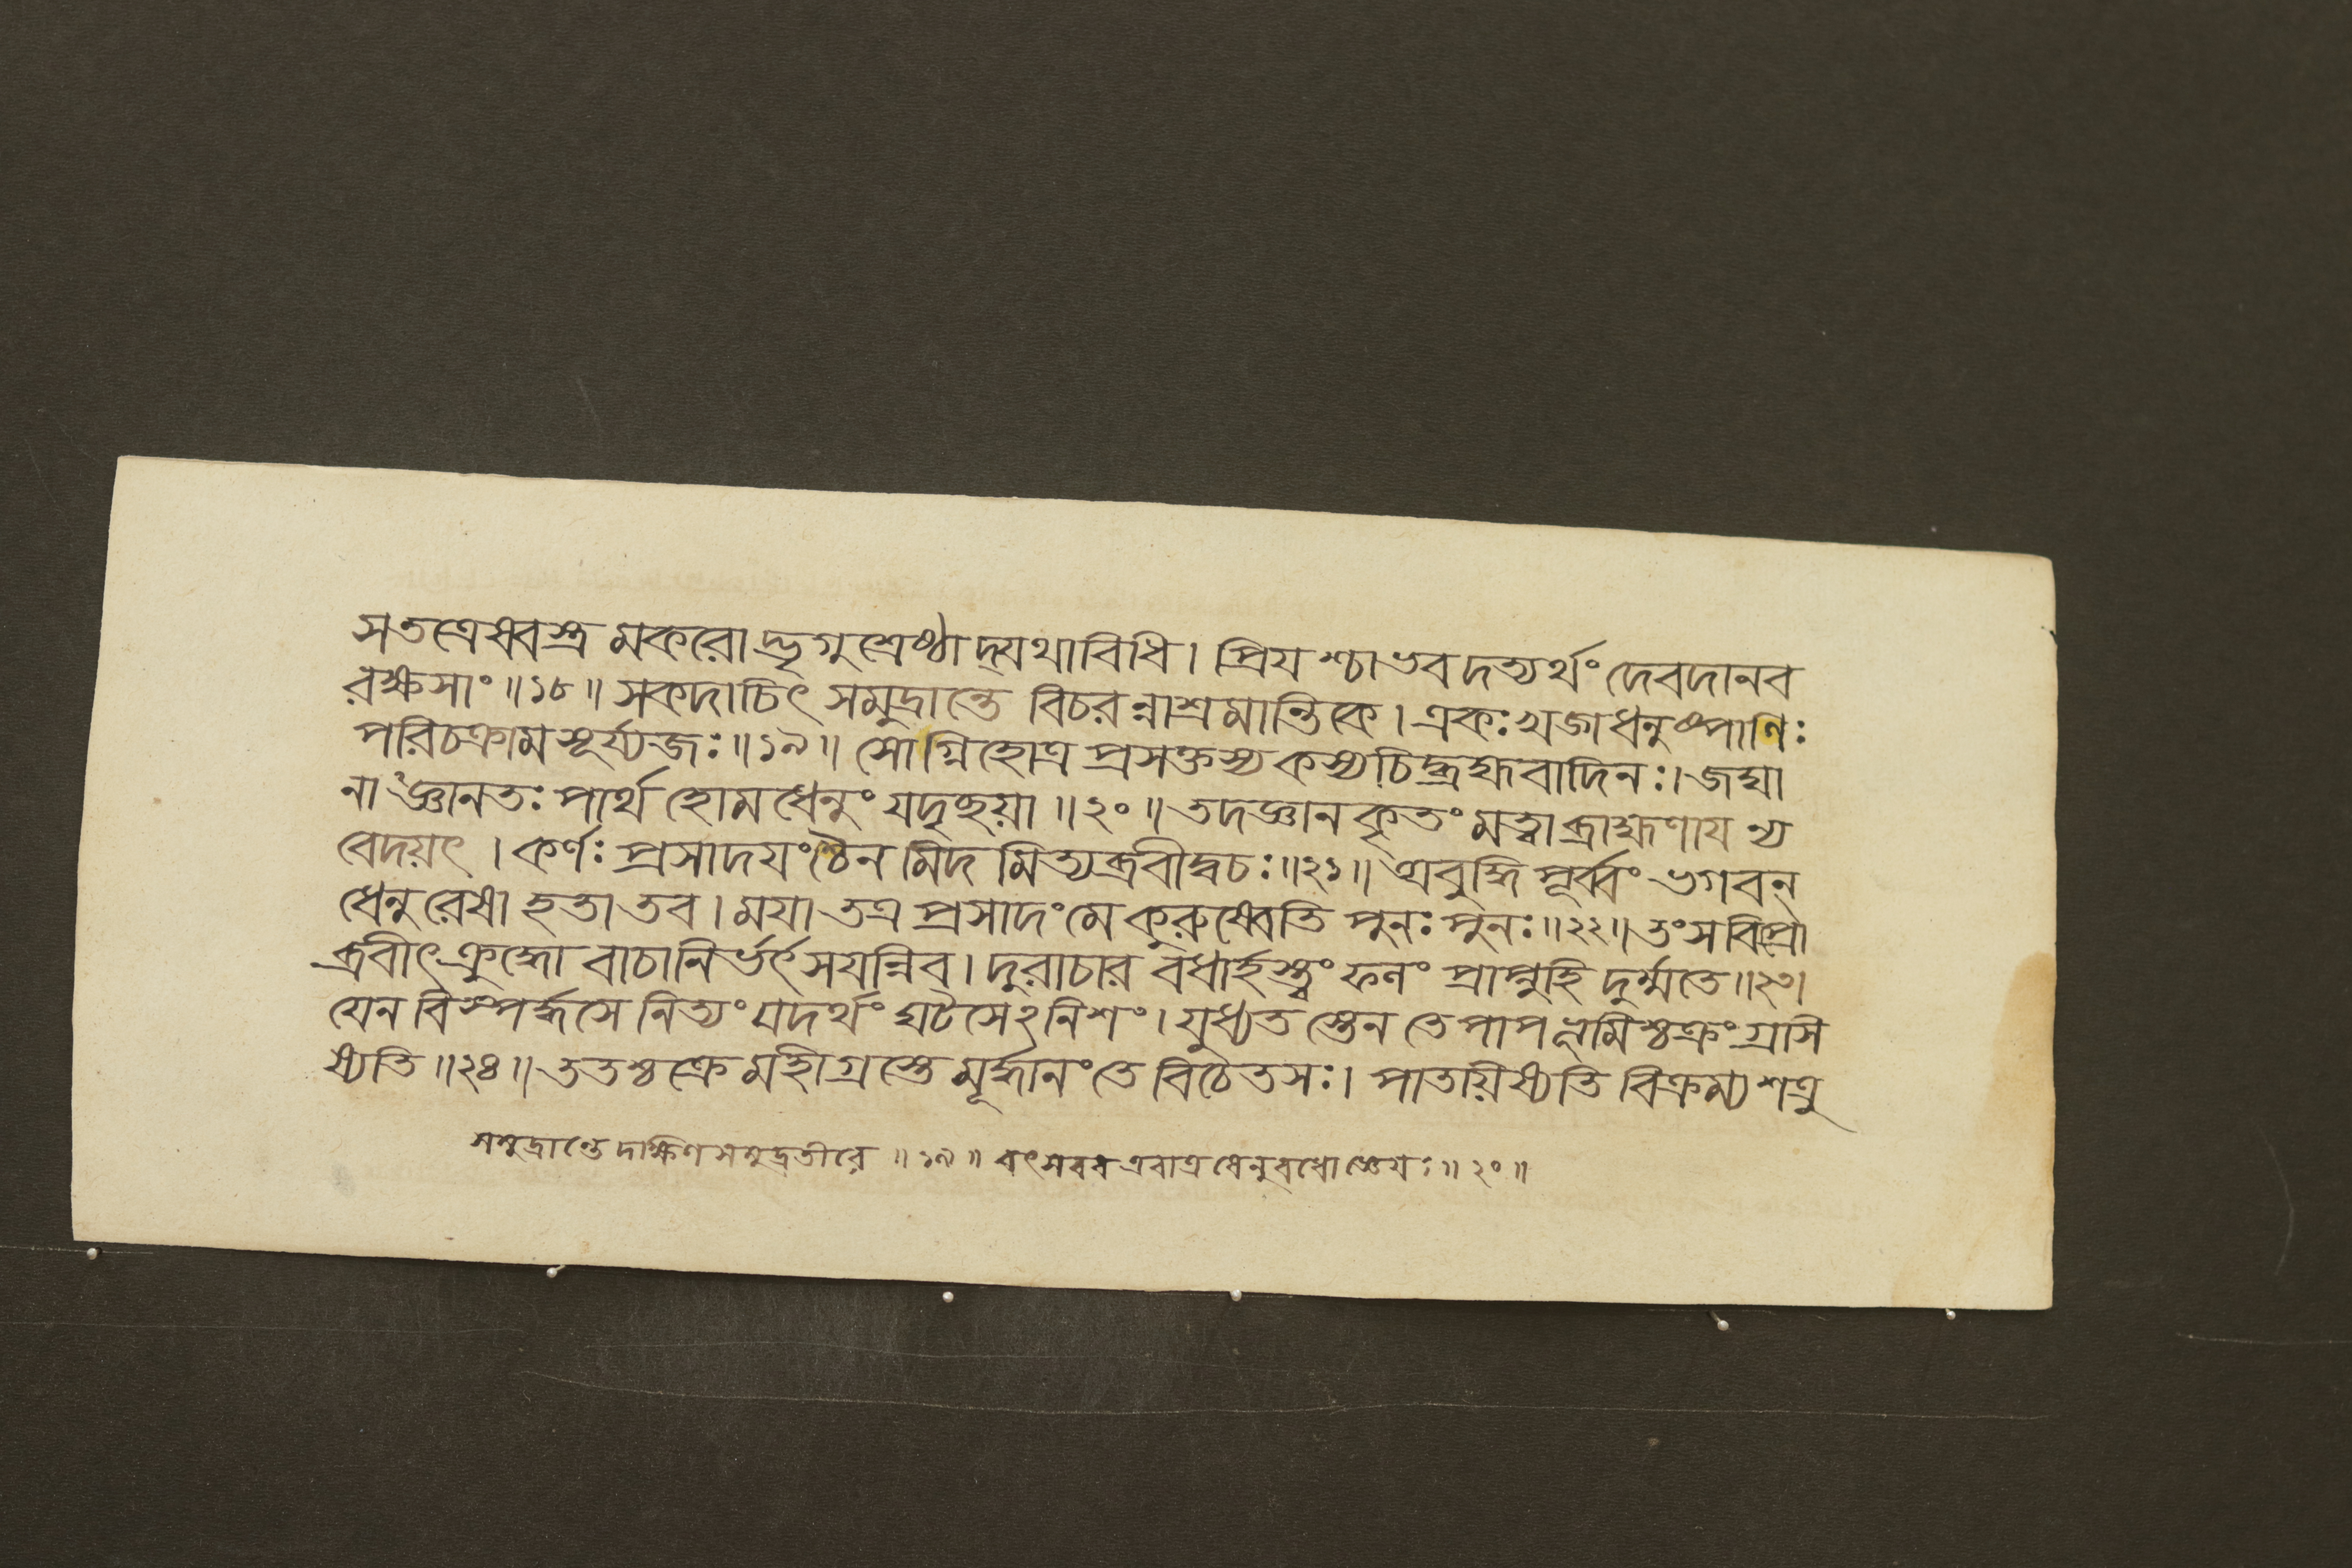 সতত্রেষ্বস্ত্রমকরোদ্ভৃগুশ্রেষ্ঠাদ্যথাবিধি। প্রিযশ্চাভবদত্যর্থং দেবদানব
রক্ষসাং॥১৮॥ সকদাচিৎ সমুদ্রান্তে বিচরন্নাশ্রমান্তিকে। একঃ খড্গধনুষ্পাণিঃ
পরিচক্রাম সূর্য্যজঃ॥১৯॥ সোগ্নিহোত্র প্রসক্তস্য কস্যচিদ্ব্রহ্মবাদিনঃ। জঘা
নাজ্ঞানতঃ পার্থ হোমধেনুং যদৃচ্ছয়া॥২০॥ তদজ্ঞানকৃতং মত্বা ব্রাহ্মণায ন্য
বেদয়ৎ। কর্ণঃ প্রসাদযংশ্চৈনমিদমিত্যব্রবীদ্বচঃ॥২১॥ অবুদ্ধি পূর্ব্বং ভগবন্
ধেনুরেষা হতা তব। মযা তত্র প্রসাদং মে কুরুষ্বেতি পুনঃ পুনঃ॥২২॥ তং স বিপ্রো
ব্রবীৎ ক্রুদ্ধো বাচা নির্ভর্ৎসযন্নিব। দুরাচার বধার্হস্ত্বং ফলং প্রাপ্নুহি দুর্ম্মতে॥২৩।
যেন বিস্পর্দ্ধসে নিত্যং যদর্থং ঘটসেঽনিশং। যুধ্যতস্তেন তে পাপ ভূমিশ্চক্রং গ্রসি
ষ্যতি॥২৪॥ ততশ্চক্রে মহীগ্রস্তে মূর্দ্ধানং তে বিচেতসঃ। পাতয়িষ্যতি বিক্রম্য শত্রু
সমুদ্রান্তে দক্ষিণসমুদ্রতীরে॥১৯॥ বৎসবব এবাত্র ধেনুবধো জ্ঞেযঃ॥২০॥